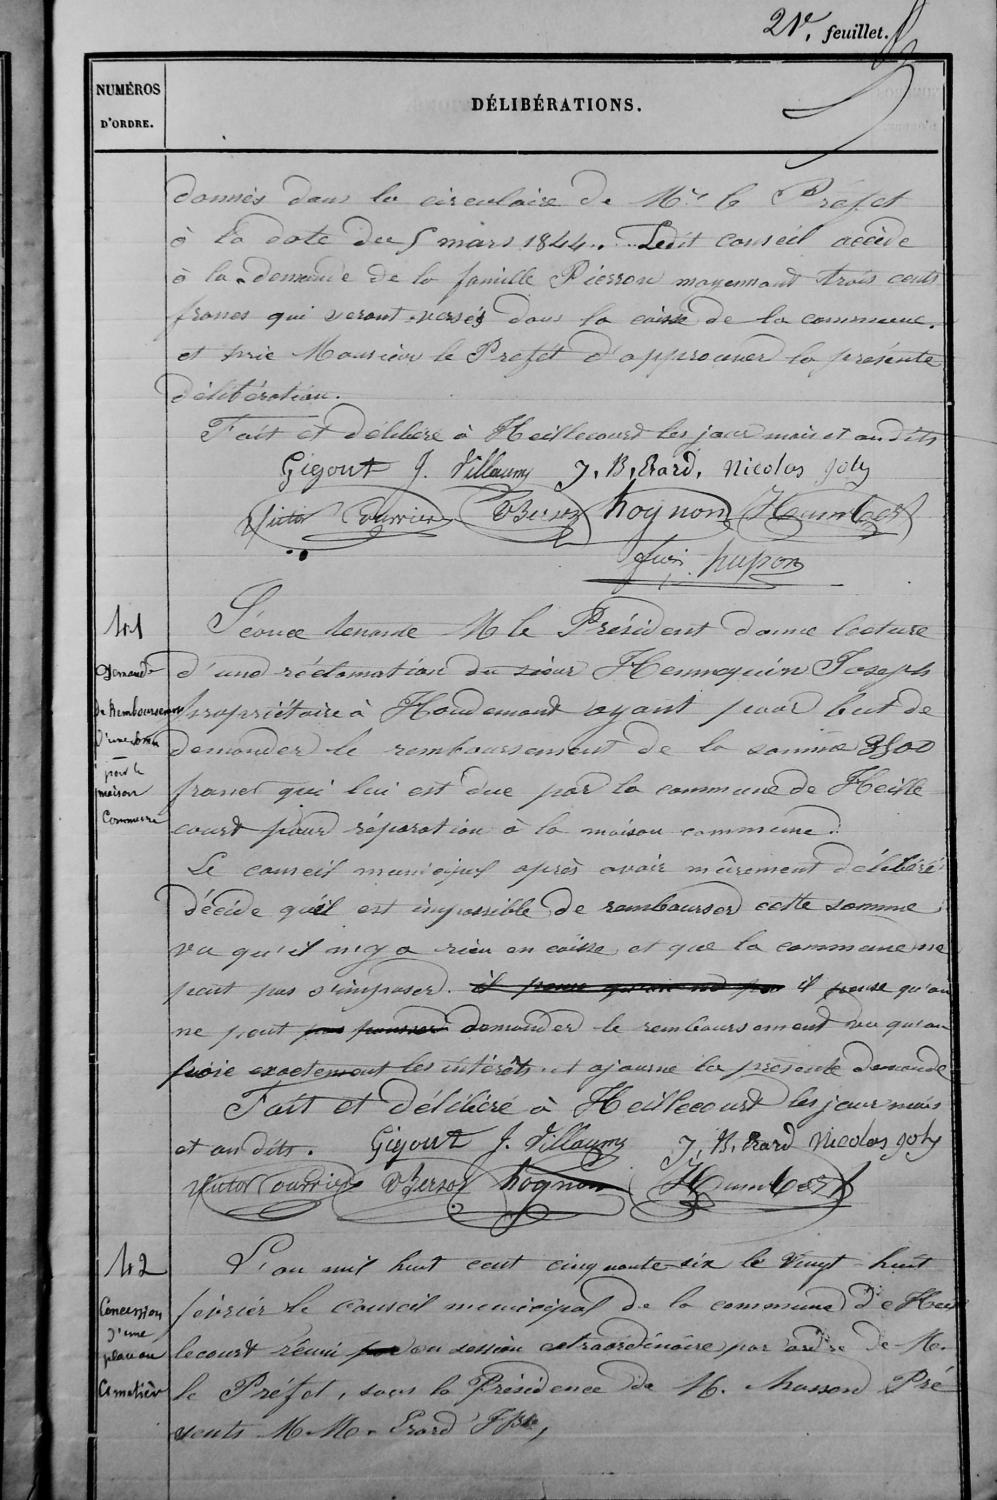 21e. feuillet.
NUMÉROS
D'ORDRE.
DÉLIBÉRATIONS.
données dans la circulaire de Mr le Préfet
à la date du 5 mars 1844. Ledit conseil accède
à la demande de la famille Pierron moyennant trois cents
francs qui seront versés dans la caisse de la commune.
et prie Monsieur le Préfet d'approuver la présente
délibération.
Fait et délibéré à Heillecourt les jour mois et an dits
Gigout J. Villaumy J. B. Erard. Nicolas Joly
Victor Courrier Bersot hognon Humbert
hupon
41
Demande
de Remboursement
d'une somme
pour la
maison
Commune
Séance tenante M le Président donne lecture
d'une réclamation du sieur Hennequin Joseph
propriétaire à Houdemont ayant pour but de
demander le remboursement de la somme 3500
francs qui lui est due par la commune de Heille
court pour réparation à la maison commune.
Le conseil municipal après avoir mûrement délibéré
décide qu'il est impossible de rembourser cette somme
vu qu'il n'y a rien en caisse et que la commune ne
peut pas s'imposer. il pense qu'on ne p il pense qu'on
ne peut pas demander le remboursement vu qu'on
paie exactement les intérêts et ajourne la présente demande
Fait et délibéré à Heillecourt les jour mois
et an dits. Gigout J. Villaumy J. B. Erard Nicolas Joly
Victor Courrier Bersot hognon Humbert
42
Concession
d'une
place au
Cimetière
L'an mil huit cent cinquante-six le vingt-huit
février le Conseil municipal de la commune de Heil
lecourt réuni par en session extraordinaire par ordre de M.
le Préfet, sous la Présidence de M. Masson Pré
sents M. M. Erard J Bte,